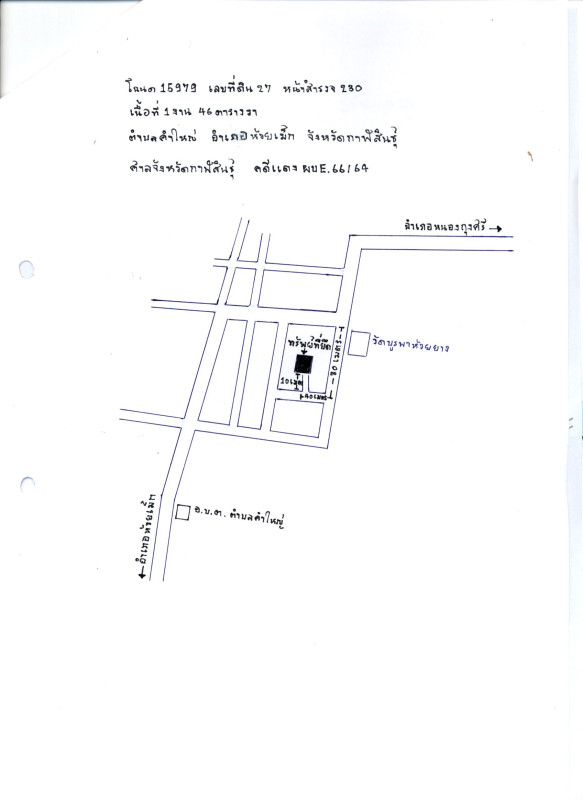 โฉนด 15979 เลขที่ดิน 27 หน้าสำรวจ 230
เนื้อที่ 1 งาน 46 ตารางวา
ตำบลคำใหญ่ อำเภอห้วยเม็ก จังหวัดกาฬสินธุ์
ศาลจังหวัดกาฬสินธุ์ คดีแดง ผบE.66/64
อำเภอหนองกุงศรี
ทรัพย์ที่ยึด
วัดบูรพาห้วยยาง
80 เมตร
20 เมตร
40 เมตร
อ.บ.ต. ตำบลคำใหญ่
อำเภอห้วยเม็ก